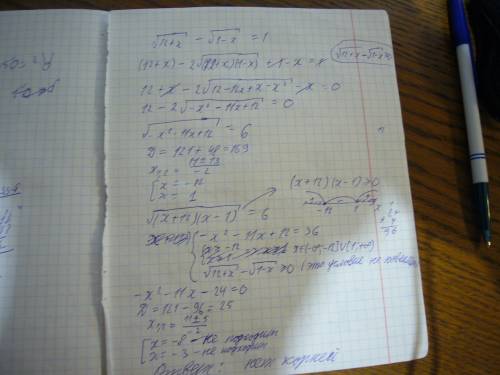 √12+x - √1-x = 1
(12+x) - 2√(12+x)(1-x) + 1-x = 1
√12+x - √1-x ≥0
12+x - 2√12-12x+x-x² - x = 0
12 - 2√-x²-11x+12 = 0
√-x²-11x+12 = 6
D = 121+48=169
x₁,₂ = 11±13 / -2
[ x = -12
x = 1
(x+12)(x-1)≥0
-12 1
√(x+12)(x-1) = 6
{ -x²-11x+12=36
x∈(-∞,-12]∪[1,+∞)
√12+x - √1-x ≥0 (это условие не
24
4
96
-x²-11x-24=0
D=121-96=25
x₁,₂ = 11±5 / -2
[ x = -8 - не подходит
x = -3 - не подходит
Ответ: нет корней